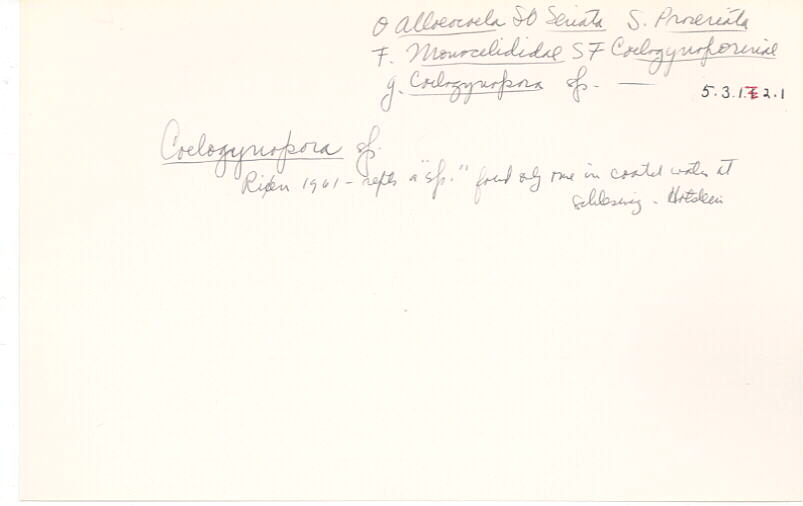 O Alloeocoela SO Seriata S. Proseriata
F. Monocelididae SF Coelogynoporinae
g. Coelogynopora sp. —
5.3.1.2.1
Coelogynopora sp.
Rixen 1961 - repts a "sp." found only one in coastal water at
Schleswig - Holstein